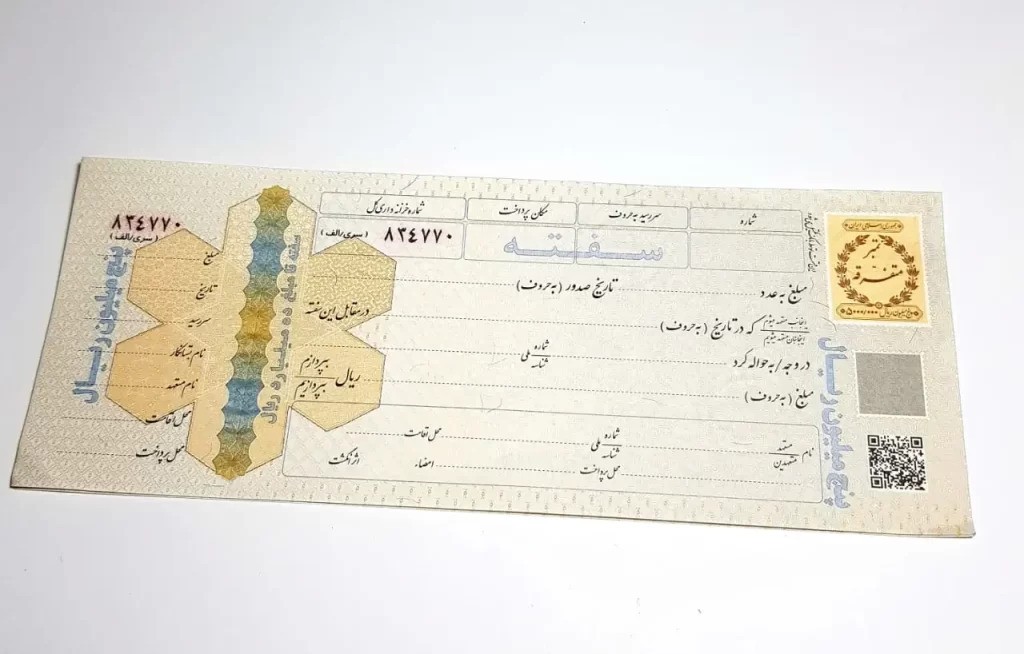 شماره
سررسید به حروف
مکان پرداخت
شماره خزانه داری کل
سفته
۸۳٤۷۷۰
(سری/الف)
مبلغ به عدد
تاریخ صدور (به حروف)
در مقابل این سفته
اینجانب متعهد میشوم
اینجانبان متعهد میشویم
که در تاریخ (به حروف)
در وجه / به حواله کرد
شماره ملی
شناسه
بپردازم
بپردازیم
ریال
مبلغ (به حروف)
نام
متعهد
متعهدین
شماره ملی
شناسه
محل اقامت
محل پرداخت
امضاء
اثر انگشت
سفته تا مبلغ ده میلیارد ریال
۸۳٤۷۷۰
(سری/الف)
مبلغ
تاریخ
سررسید
نام بستانکار
نام متعهد
محل اقامت
محل پرداخت
پنج میلیون ریال
پنج میلیون ریال
جمهوری اسلامی ایران
تمبر
متفرقه
پنج میلیون ریال ۵۰۰۰/۰۰۰